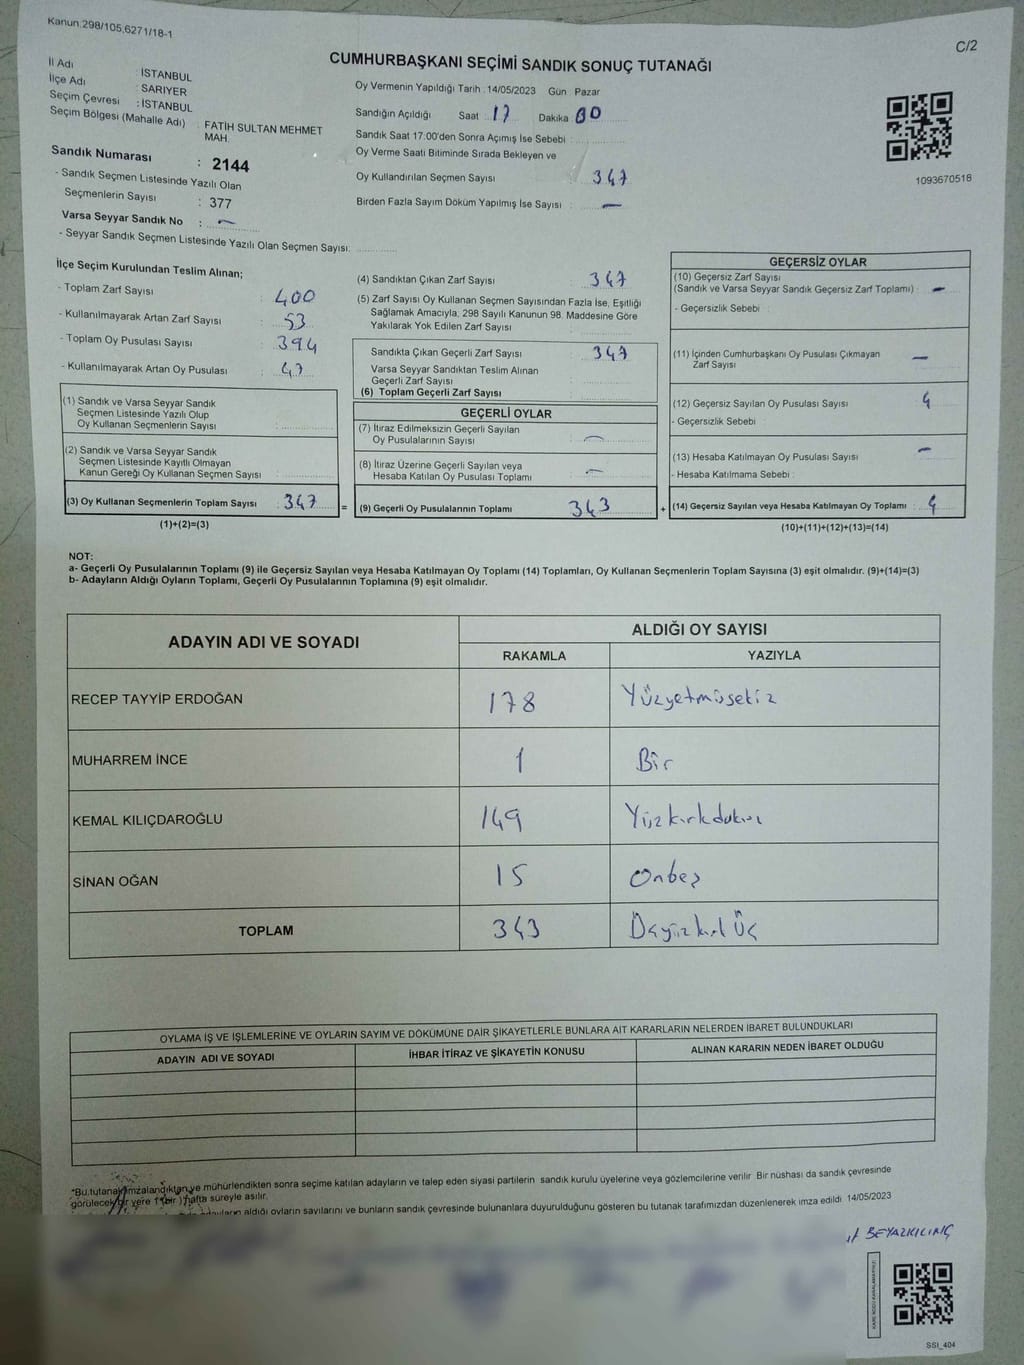 Kanun:298/105,6271/18-1
C/2
CUMHURBAŞKANI SEÇİMİ SANDIK SONUÇ TUTANAĞI
İl Adı : İSTANBUL
İlçe Adı : SARIYER
Seçim Çevresi : İSTANBUL
Seçim Bölgesi (Mahalle Adı) : FATİH SULTAN MEHMET MAH.
Sandık Numarası : 2144
- Sandık Seçmen Listesinde Yazılı Olan
Seçmenlerin Sayısı : 377
Varsa Seyyar Sandık No : —
- Seyyar Sandık Seçmen Listesinde Yazılı Olan Seçmen Sayısı:
Oy Vermenin Yapıldığı Tarih : 14/05/2023 Gün : Pazar
Sandığın Açıldığı Saat : 17 Dakika : 00
Sandık Saat 17:00'den Sonra Açımış İse Sebebi :
Oy Verme Saati Bitiminde Sırada Bekleyen ve
Oy Kullandırılan Seçmen Sayısı : 347
Birden Fazla Sayım Döküm Yapılmış İse Sayısı : —
1093670518
İlçe Seçim Kurulundan Teslim Alınan;
- Toplam Zarf Sayısı : 400
- Kullanılmayarak Artan Zarf Sayısı : 53
- Toplam Oy Pusulası Sayısı : 394
- Kullanılmayarak Artan Oy Pusulası : 47
(1) Sandık ve Varsa Seyyar Sandık
Seçmen Listesinde Yazılı Olup
Oy Kullanan Seçmenlerin Sayısı :
(2) Sandık ve Varsa Seyyar Sandık
Seçmen Listesinde Kayıtlı Olmayan
Kanun Gereği Oy Kullanan Seçmen Sayısı :
(3) Oy Kullanan Seçmenlerin Toplam Sayısı : 347 =
(1)+(2)=(3)
(4) Sandıktan Çıkan Zarf Sayısı : 347
(5) Zarf Sayısı Oy Kullanan Seçmen Sayısından Fazla İse, Eşitliği
Sağlamak Amacıyla, 298 Sayılı Kanunun 98. Maddesine Göre
Yakılarak Yok Edilen Zarf Sayısı :
Sandıkta Çıkan Geçerli Zarf Sayısı : 347
Varsa Seyyar Sandıktan Teslim Alınan
Geçerli Zarf Sayısı :
(6) Toplam Geçerli Zarf Sayısı :
GEÇERLİ OYLAR
(7) İtiraz Edilmeksizin Geçerli Sayılan
Oy Pusulalarının Sayısı : —
(8) İtiraz Üzerine Geçerli Sayılan veya
Hesaba Katılan Oy Pusulası Toplamı : —
(9) Geçerli Oy Pusulalarının Toplamı : 343 +
GEÇERSİZ OYLAR
(10) Geçersiz Zarf Sayısı
(Sandık ve Varsa Seyyar Sandık Geçersiz Zarf Toplamı) : —
- Geçersizlik Sebebi :
(11) İçinden Cumhurbaşkanı Oy Pusulası Çıkmayan
Zarf Sayısı : —
(12) Geçersiz Sayılan Oy Pusulası Sayısı : 4
- Geçersizlik Sebebi :
(13) Hesaba Katılmayan Oy Pusulası Sayısı : —
- Hesaba Katılmama Sebebi :
(14) Geçersiz Sayılan veya Hesaba Katılmayan Oy Toplamı : 4
(10)+(11)+(12)+(13)=(14)
NOT:
a- Geçerli Oy Pusulalarının Toplamı (9) ile Geçersiz Sayılan veya Hesaba Katılmayan Oy Toplamı (14) Toplamları, Oy Kullanan Seçmenlerin Toplam Sayısına (3) eşit olmalıdır. (9)+(14)=(3)
b- Adayların Aldığı Oyların Toplamı, Geçerli Oy Pusulalarının Toplamına (9) eşit olmalıdır.
ADAYIN ADI VE SOYADI
ALDIĞI OY SAYISI
RAKAMLA YAZIYLA
RECEP TAYYİP ERDOĞAN 178 Yüzyetmişsekiz
MUHARREM İNCE 1 Bir
KEMAL KILIÇDAROĞLU 149 Yüzkırkdokuz
SİNAN OĞAN 15 Onbeş
TOPLAM 343 Üçyüzkırk Üç
OYLAMA İŞ VE İŞLEMLERİNE VE OYLARIN SAYIM VE DÖKÜMÜNE DAİR ŞİKAYETLERLE BUNLARA AİT KARARLARIN NELERDEN İBARET BULUNDUKLARI
ADAYIN ADI VE SOYADI İHBAR İTİRAZ VE ŞİKAYETİN KONUSU ALINAN KARARIN NEDEN İBARET OLDUĞU
*Bu tutanak imzalandıktan ve mühürlendikten sonra seçime katılan adayların ve talep eden siyasi partilerin sandık kurulu üyelerine veya gözlemcilerine verilir. Bir nüshası da sandık çevresinde
görülecek bir yere 1 (bir) hafta süreyle asılır.
aldığı oyların sayılarını ve bunların sandık çevresinde bulunanlara duyurulduğunu gösteren bu tutanak tarafımızdan düzenlenerek imza edildi. 14/05/2023
BEYAZKILINÇ
SSI_404